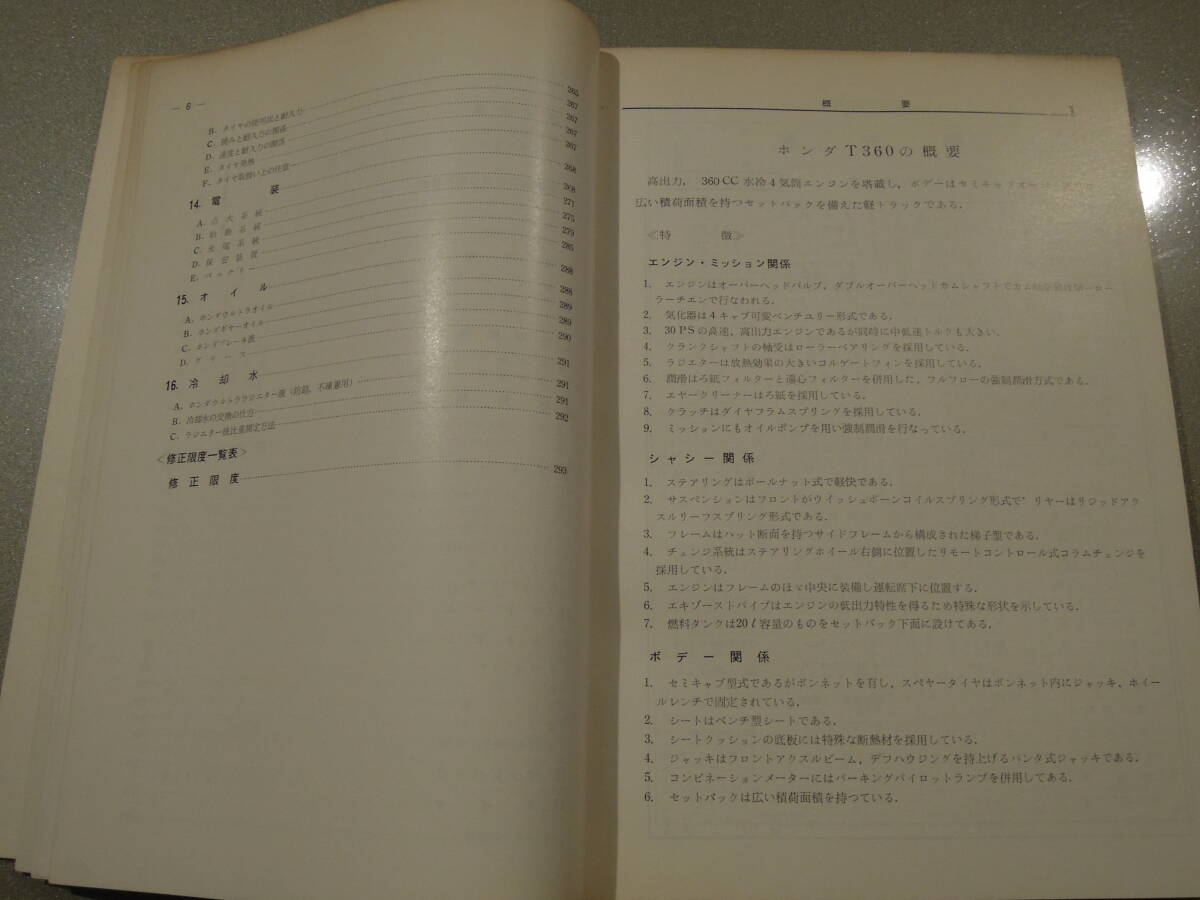 — 6 —
265
B. タイヤの使用法と耐久力 267
C. 撓みと耐久力の関係 267
D. 速度と耐久力の関係 267
E. タイヤ発熱
F. タイヤ取扱い上の注意 268
14. 電 装 268
A. 点火系統 271
B. 始動系統 275
C. 充電系統 279
D. 保安装置 285
E. バッテリー
15. オイル 288
A. ホンダウルトラオイル 288
B. ホンダギヤーオイル 289
C. ホンダブレーキ液 289
D. グリース 290
16. 冷却水 291
A. ホンダウルトララジエター液(防錆、不凍兼用) 291
B. 冷却水の交換の仕方 291
C. ラジエター液比重測定方法 292
<修正限度一覧表>
修正限度 293
概 要 1
ホンダT360の概要
高出力, 360CC 水冷4気筒エンジンを塔載し, ボデーはセミキャブ
広い積荷面積を持つセットバックを備えた軽トラックである.
≪特 徴≫
エンジン・ミッション関係
1. エンジンはオーバーヘッドバルブ, ダブルオーバーヘッドカムシャフトでカム
ラーチエンで行なわれる.
2. 気化器は4キャブ可変ベンチユリー形式である.
3. 30PSの高速, 高出力エンジンであるが同時に中低速トルクも大きい.
4. クランクシャフトの軸受はローラーベアリングを採用している.
5. ラジエターは放熱効果の大きいコルゲートフィンを採用している.
6. 潤滑はろ紙フィルターと遠心フィルターを併用した, フルフローの強制潤滑方式である.
7. エヤークリーナーはろ紙を採用している.
8. クラッチはダイヤフラムスプリングを採用している.
9. ミッションにもオイルポンプを用い強制潤滑を行なっている.
シャシー関係
1. ステアリングはボールナット式で軽快である.
2. サスペンションはフロントがウイッシュボーンコイルスプリング形式で リヤーはリジッドアク
スルリーフスプリング形式である.
3. フレームはハット断面を持つサイドフレームから構成された梯子型である.
4. チェンジ系統はステアリングホイール右側に位置したリモートコントロール式コラムチェンジを
採用している.
5. エンジンはフレームのほゞ中央に装備し運転席下に位置する.
6. エキゾーストパイプはエンジンの低出力特性を得るため特殊な形状を示している.
7. 燃料タンクは20ℓ容量のものをセットバック下面に設けてある.
ボデー関係
1. セミキャブ型式であるがボンネットを有し, スペヤータイヤはボンネット内にジャッキ, ホイー
ルレンチで固定されている.
2. シートはベンチ型シートである.
3. シートクッションの底板には特殊な断熱材を採用している.
4. ジャッキはフロントアクスルビーム, デフハウジングを持上げるパンタ式ジャッキである.
5. コンビネーションメーターにはパーキングパイロットランプを併用してある.
6. セットバックは広い積荷面積を持つている.